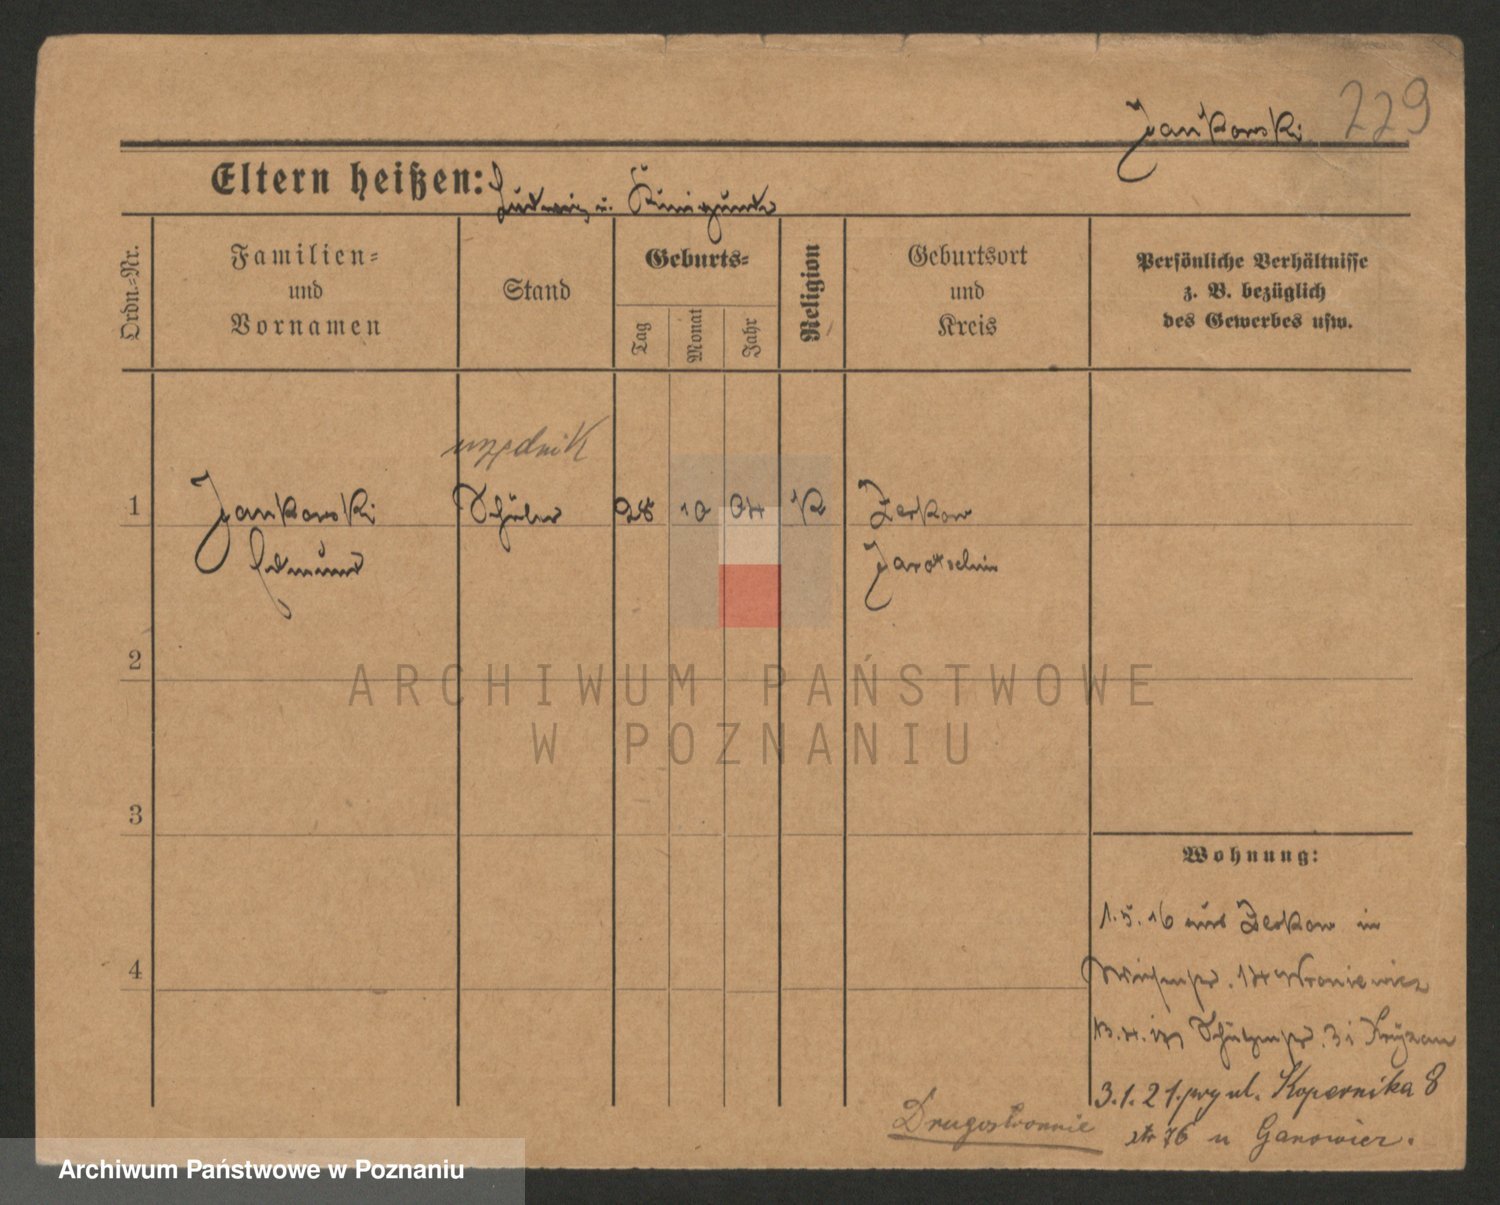 Jankowski 229
Eltern heißen: Ludwig u. Kunigunde
Ordn.-Nr.
Familien-
und
Vornamen
Stand
Geburts-
Tag
Monat
Jahr
Religion
Geburtsort
und
Kreis
Persönliche Verhältnisse
z. B. bezüglich
des Gewerbes usw.
urzędnik
1 Jankowski Schüler 28 10 04 K Zerkow
Edmund Jarotschin
2
3
4
Wohnung:
1.5.16 aus Zerkow in
14 Wroniewicz
Schützenstr. 31
3.1.21. przy ul. Kopernika 8
str 76 u Ganowicz.
Drugostronnie
ARCHIWUM PAŃSTWOWE
W POZNANIU
Archiwum Państwowe w Poznaniu